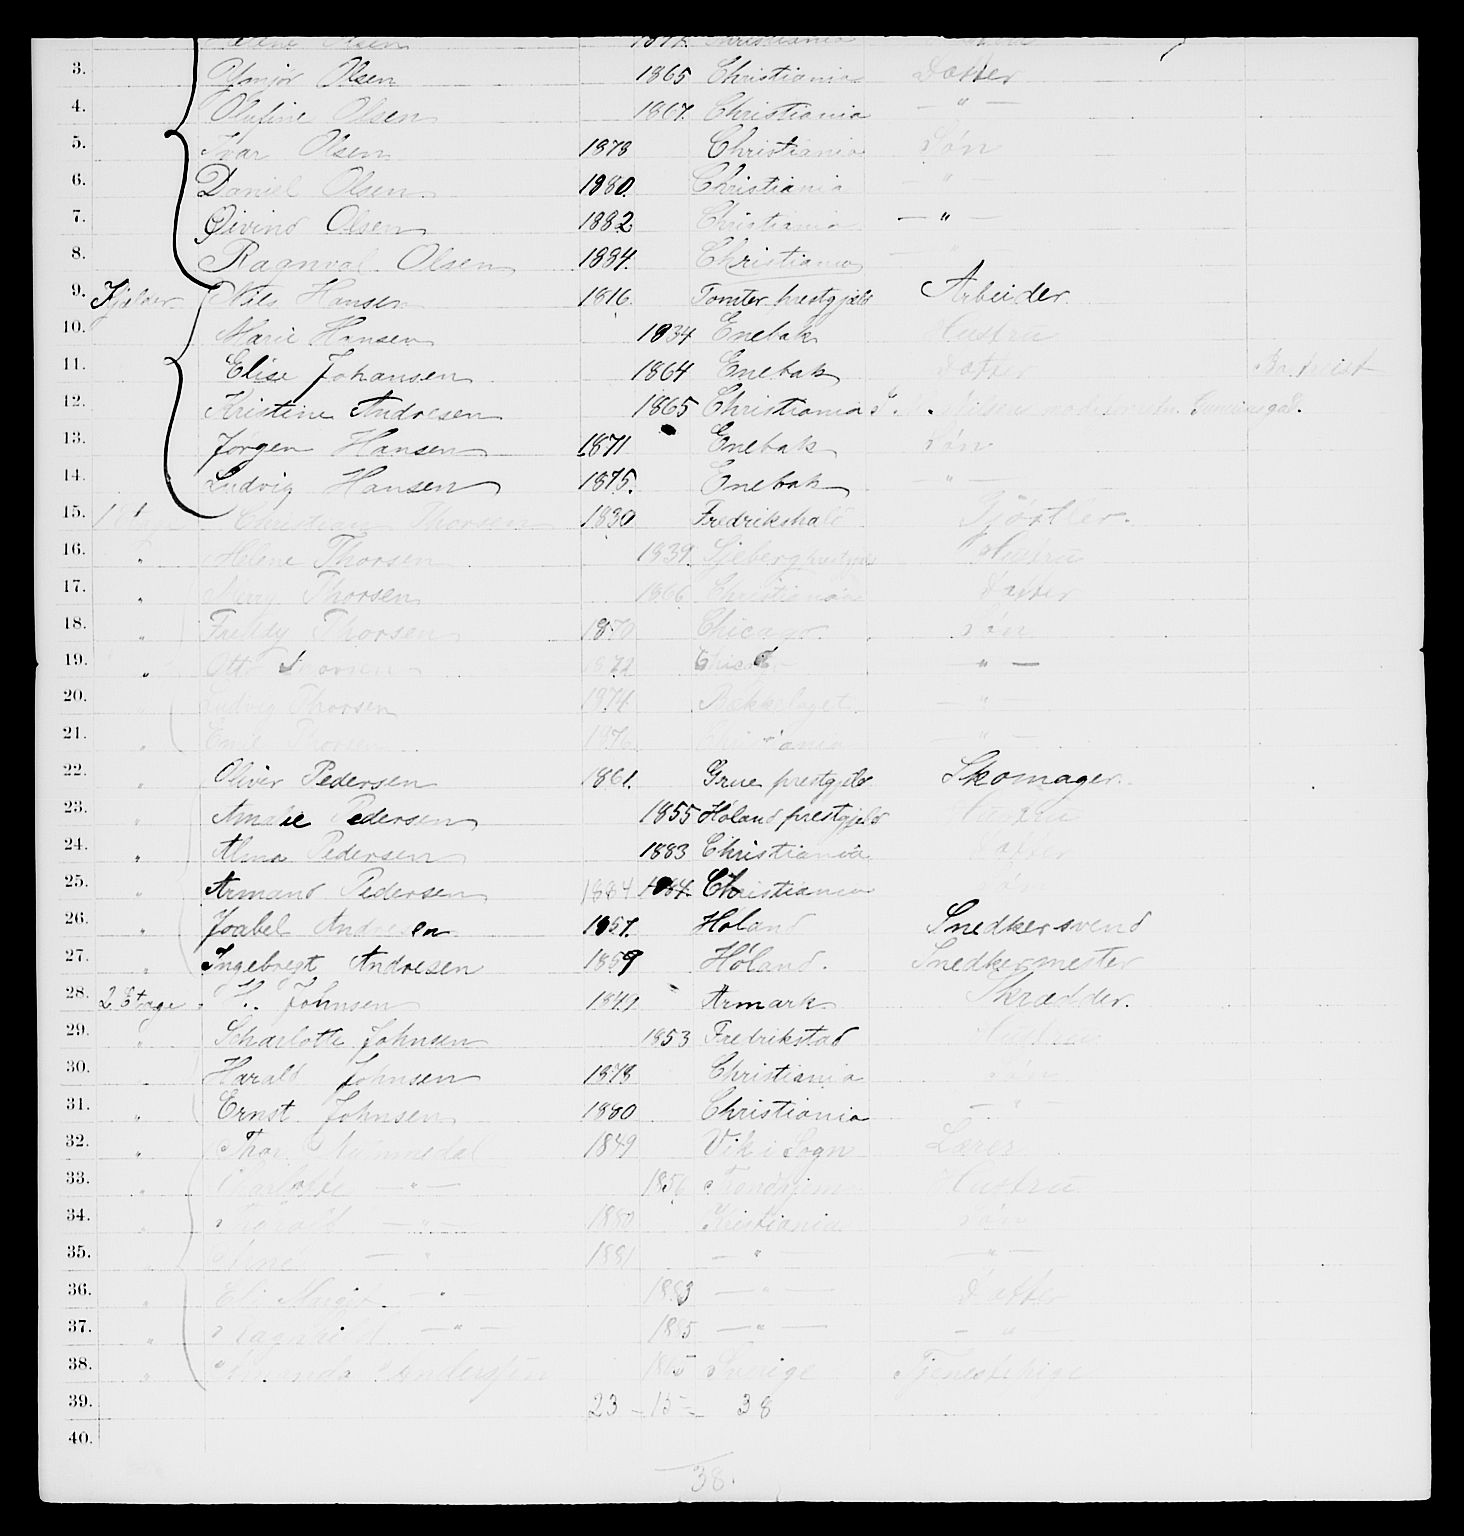 Olsen Christiania
3. Olsen 1865 Christiania Datter
4. Olufine Olsen 1867 Christiania — " —
5. Ivar Olsen 1878 Christiania Søn
6. Daniel Olsen 1880 Christiania — " —
7. Øivind Olsen 1882 Christiania — " —
8. Ragnval Olsen 1884 Christiania
9. Kjelder Nils Hansen 1816 Tomter prestgjeld Arbeider
10. Marie Hansen 1834 Enebak Hustru
11. Elise Johansen 1864 Enebak Datter Baptist
12. Kristine Andresen 1865 Christiania
13. Jørgen Hansen 1871 Enebak Søn
14. Ludvig Hansen 1875 Enebak " —
15. 1 Etage Christian Thorsen 1830 Fredrikshald Gjørtler.
16. " Helene Thorsen 1839 Hustru
17. " Thorsen 1866 Christiania Datter
18. " Freddy Thorsen 1870 Chicago Søn
19. " Otto Thorsen 1872 Chicago — " —
20. " Ludvig Thorsen 1874 Bækkelaget — " —
21. " Emil Thorsen 1876 Christiania — " —
22. " Oliver Pedersen 1861. Grue prestgjeld Skomager.
23. " Amalie Pedersen 1855 Høland prestgjeld Hustru
24. " Alma Pedersen 1883 Christiania Datter
25. " Armand Pedersen 1884 1884 Christiania Søn
26. " Joabel Andresen 1857. Høland Snedkersvend
27. " Ingebregt Andresen 1859 Høland. Snedkermester
28. 2 Etage Johnsen Aremark Skrædder.
29. " Scharlotte Johnsen 1853 Fredrikstad Hustru
30. " Harald Johnsen 1878 Christiania Søn
31. " Ernst Johnsen 1880 Christiania — " —
32. " Nummedal 1849 Vik i Sogn Lærer
33. " Charlotte — " — 1856 Trondhjem Hustru
34. " — " — 1880 Kristiania Søn
35. " Arne — " — 1881 — " — " —
36. " Eli Margit — " — 1883 — " — Datter
37. " Ragnhild — " — 1885 — " — — " —
38. " Amanda Andersen 1865 Sverige Tjenestepige
39. 23 – 15 = 38
40.
38.